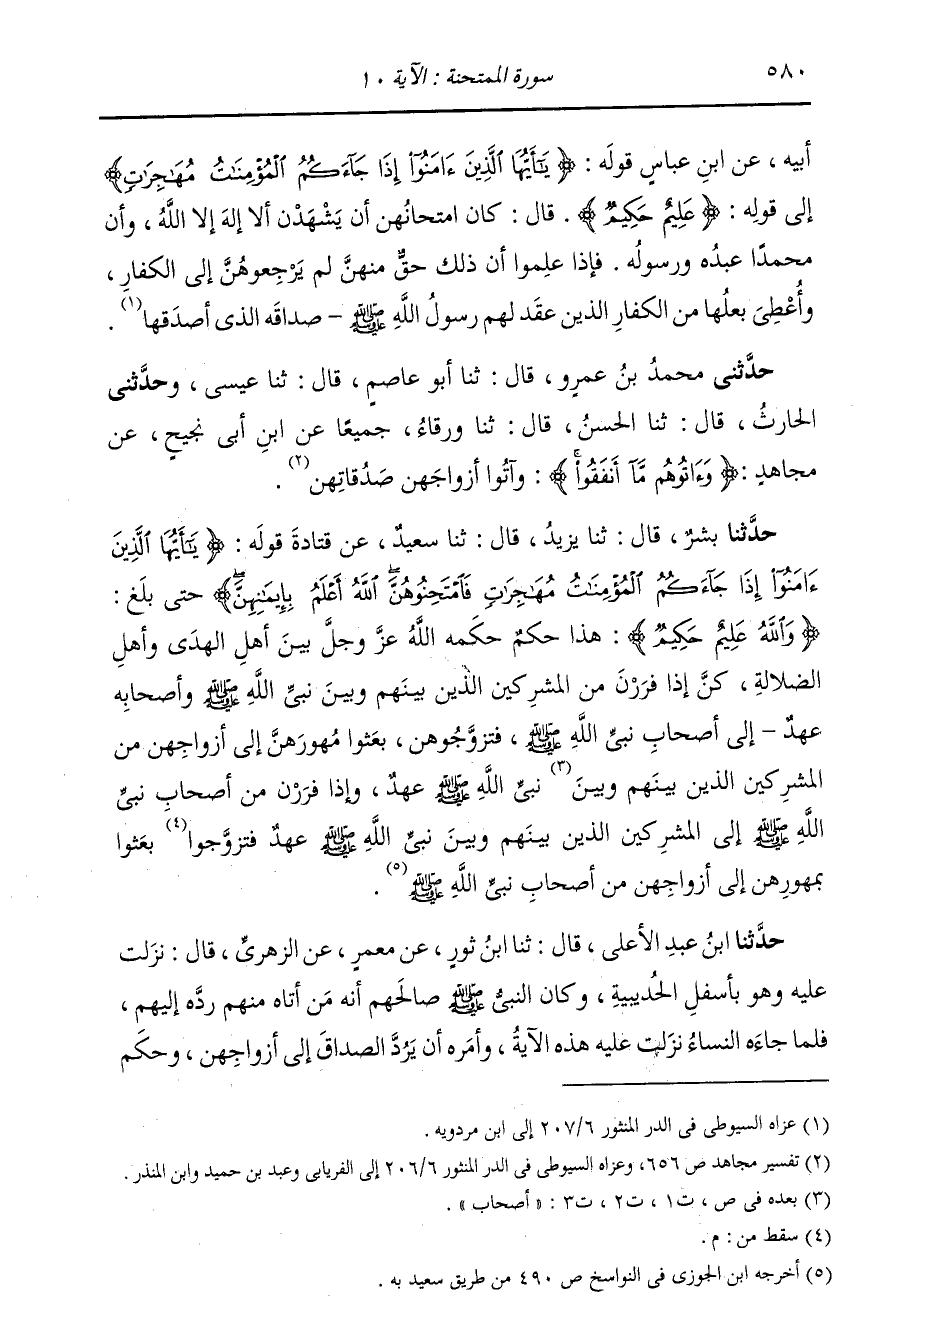 ٥٨٠ سورة الممتحنة : الآية ١٠
أبيه ، عن ابنِ عباسٍ قولَه : ﴿ يَٰٓأَيُّهَا ٱلَّذِينَ ءَامَنُوٓاْ إِذَا جَآءَكُمُ ٱلْمُؤْمِنَٰتُ مُهَٰجِرَٰتٍ ﴾
إلى قولِه : ﴿ عَلِيمٌ حَكِيمٌ ﴾ . قال : كان امتحانُهن أن يَشْهَدْن ألا إلهَ إلا اللَّهُ ، وأن
محمدًا عبدُه ورسولُه . فإذا علِموا أن ذلك حقٌّ منهنَّ لم يَرْجِعوهُنَّ إلى الكفارِ ،
وأُعْطِىَ بعلُها من الكفارِ الذين عقَد لهم رسولُ اللَّهِ ﷺ – صداقَه الذى أصدَقها(١) .
حدَّثنى محمدُ بنُ عمرٍو ، قال : ثنا أبو عاصمٍ ، قال : ثنا عيسى ، وحدَّثنى
الحارثُ ، قال : ثنا الحسنُ ، قال : ثنا ورقاءُ ، جميعًا عن ابنِ أبى نجيحٍ ، عن
مجاهدٍ : ﴿ وَءَاتُوهُم مَّآ أَنفَقُواْۚ ﴾ : وآتُوا أزواجَهن صَدُقاتِهن(٢) .
حدَّثنا بشرٌ ، قال : ثنا يزيدُ ، قال : ثنا سعيدٌ ، عن قتادةَ قولَه : ﴿ يَٰٓأَيُّهَا ٱلَّذِينَ
ءَامَنُوٓاْ إِذَا جَآءَكُمُ ٱلْمُؤْمِنَٰتُ مُهَٰجِرَٰتٍ فَٱمْتَحِنُوهُنَّۖ ٱللَّهُ أَعْلَمُ بِإِيمَٰنِهِنَّۖ ﴾ حتى بلَغ :
﴿ وَٱللَّهُ عَلِيمٌ حَكِيمٌ ﴾ : هذا حكمٌ حكَمه اللَّهُ عزَّ وجلَّ بينَ أهلِ الهدَى وأهلِ
الضلالةِ ، كنَّ إذا فرَرْنَ من المشركين الذين بينَهم وبينَ نبىِّ اللَّهِ ﷺ وأصحابِه
عهدٌ – إلى أصحابِ نبىِّ اللَّهِ ﷺ ، فتزوَّجُوهن ، بعَثوا مُهورَهنَّ إلى أزواجِهن من
المشركين الذين بينَهم وبينَ(٣) نبىِّ اللَّهِ ﷺ عهدٌ ، وإذا فرَرْن من أصحابِ نبىِّ
اللَّهِ ﷺ إلى المشركين الذين بينَهم وبينَ نبىِّ اللَّهِ ﷺ عهدٌ فتزوَّجوا(٤) بعَثوا
بمهورِهن إلى أزواجِهن من أصحابِ نبىِّ اللَّهِ ﷺ(٥) .
حدَّثنا ابنُ عبدِ الأعلى ، قال : ثنا ابنُ ثورٍ ، عن معمرٍ ، عن الزهرىِّ ، قال : نزَلت
عليه وهو بأسفلِ الحُديبيةِ ، وكان النبىُّ ﷺ صالَحهم أنه مَن أتاه منهم ردَّه إليهم ،
فلما جاءَه النساءُ نزَلت عليه هذه الآيةُ ، وأمَره أن يَرُدَّ الصداقَ إلى أزواجِهن ، وحكَم
(١) عزاه السيوطى فى الدر المنثور ٢٠٧/٦ إلى ابن مردويه .
(٢) تفسير مجاهد ص ٦٥٦، وعزاه السيوطى فى الدر المنثور ٢٠٦/٦ إلى الفريابى وعبد بن حميد وابن المنذر .
(٣) بعده فى ص ، ت١ ، ت٢ ، ت٣ : « أصحاب » .
(٤) سقط من : م .
(٥) أخرجه ابن الجوزى فى النواسخ ص ٤٩٠ من طريق سعيد به .